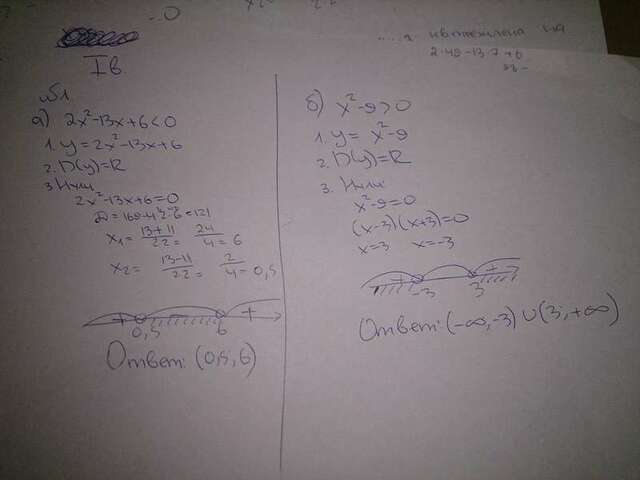 Iв.
№1
а) 2x²-13x+6<0
1. y=2x²-13x+6
2. D(y)=R
3. Нули:
2x²-13x+6=0
D=169-4·2·6=121
x₁= 13+11/2·2= 24/4=6
x₂= 13-11/2·2= 2/4=0,5
+ - +
0,5 6
Ответ: (0,5, 6)
б) x²-9>0
1. y= x²-9
2. D(y)=R
3. Нули:
x²-9=0
(x-3)(x+3)=0
x=3 x=-3
+ - +
-3 3
Ответ: (-∞,-3)∪(3;+∞)
2·49-13·7+6